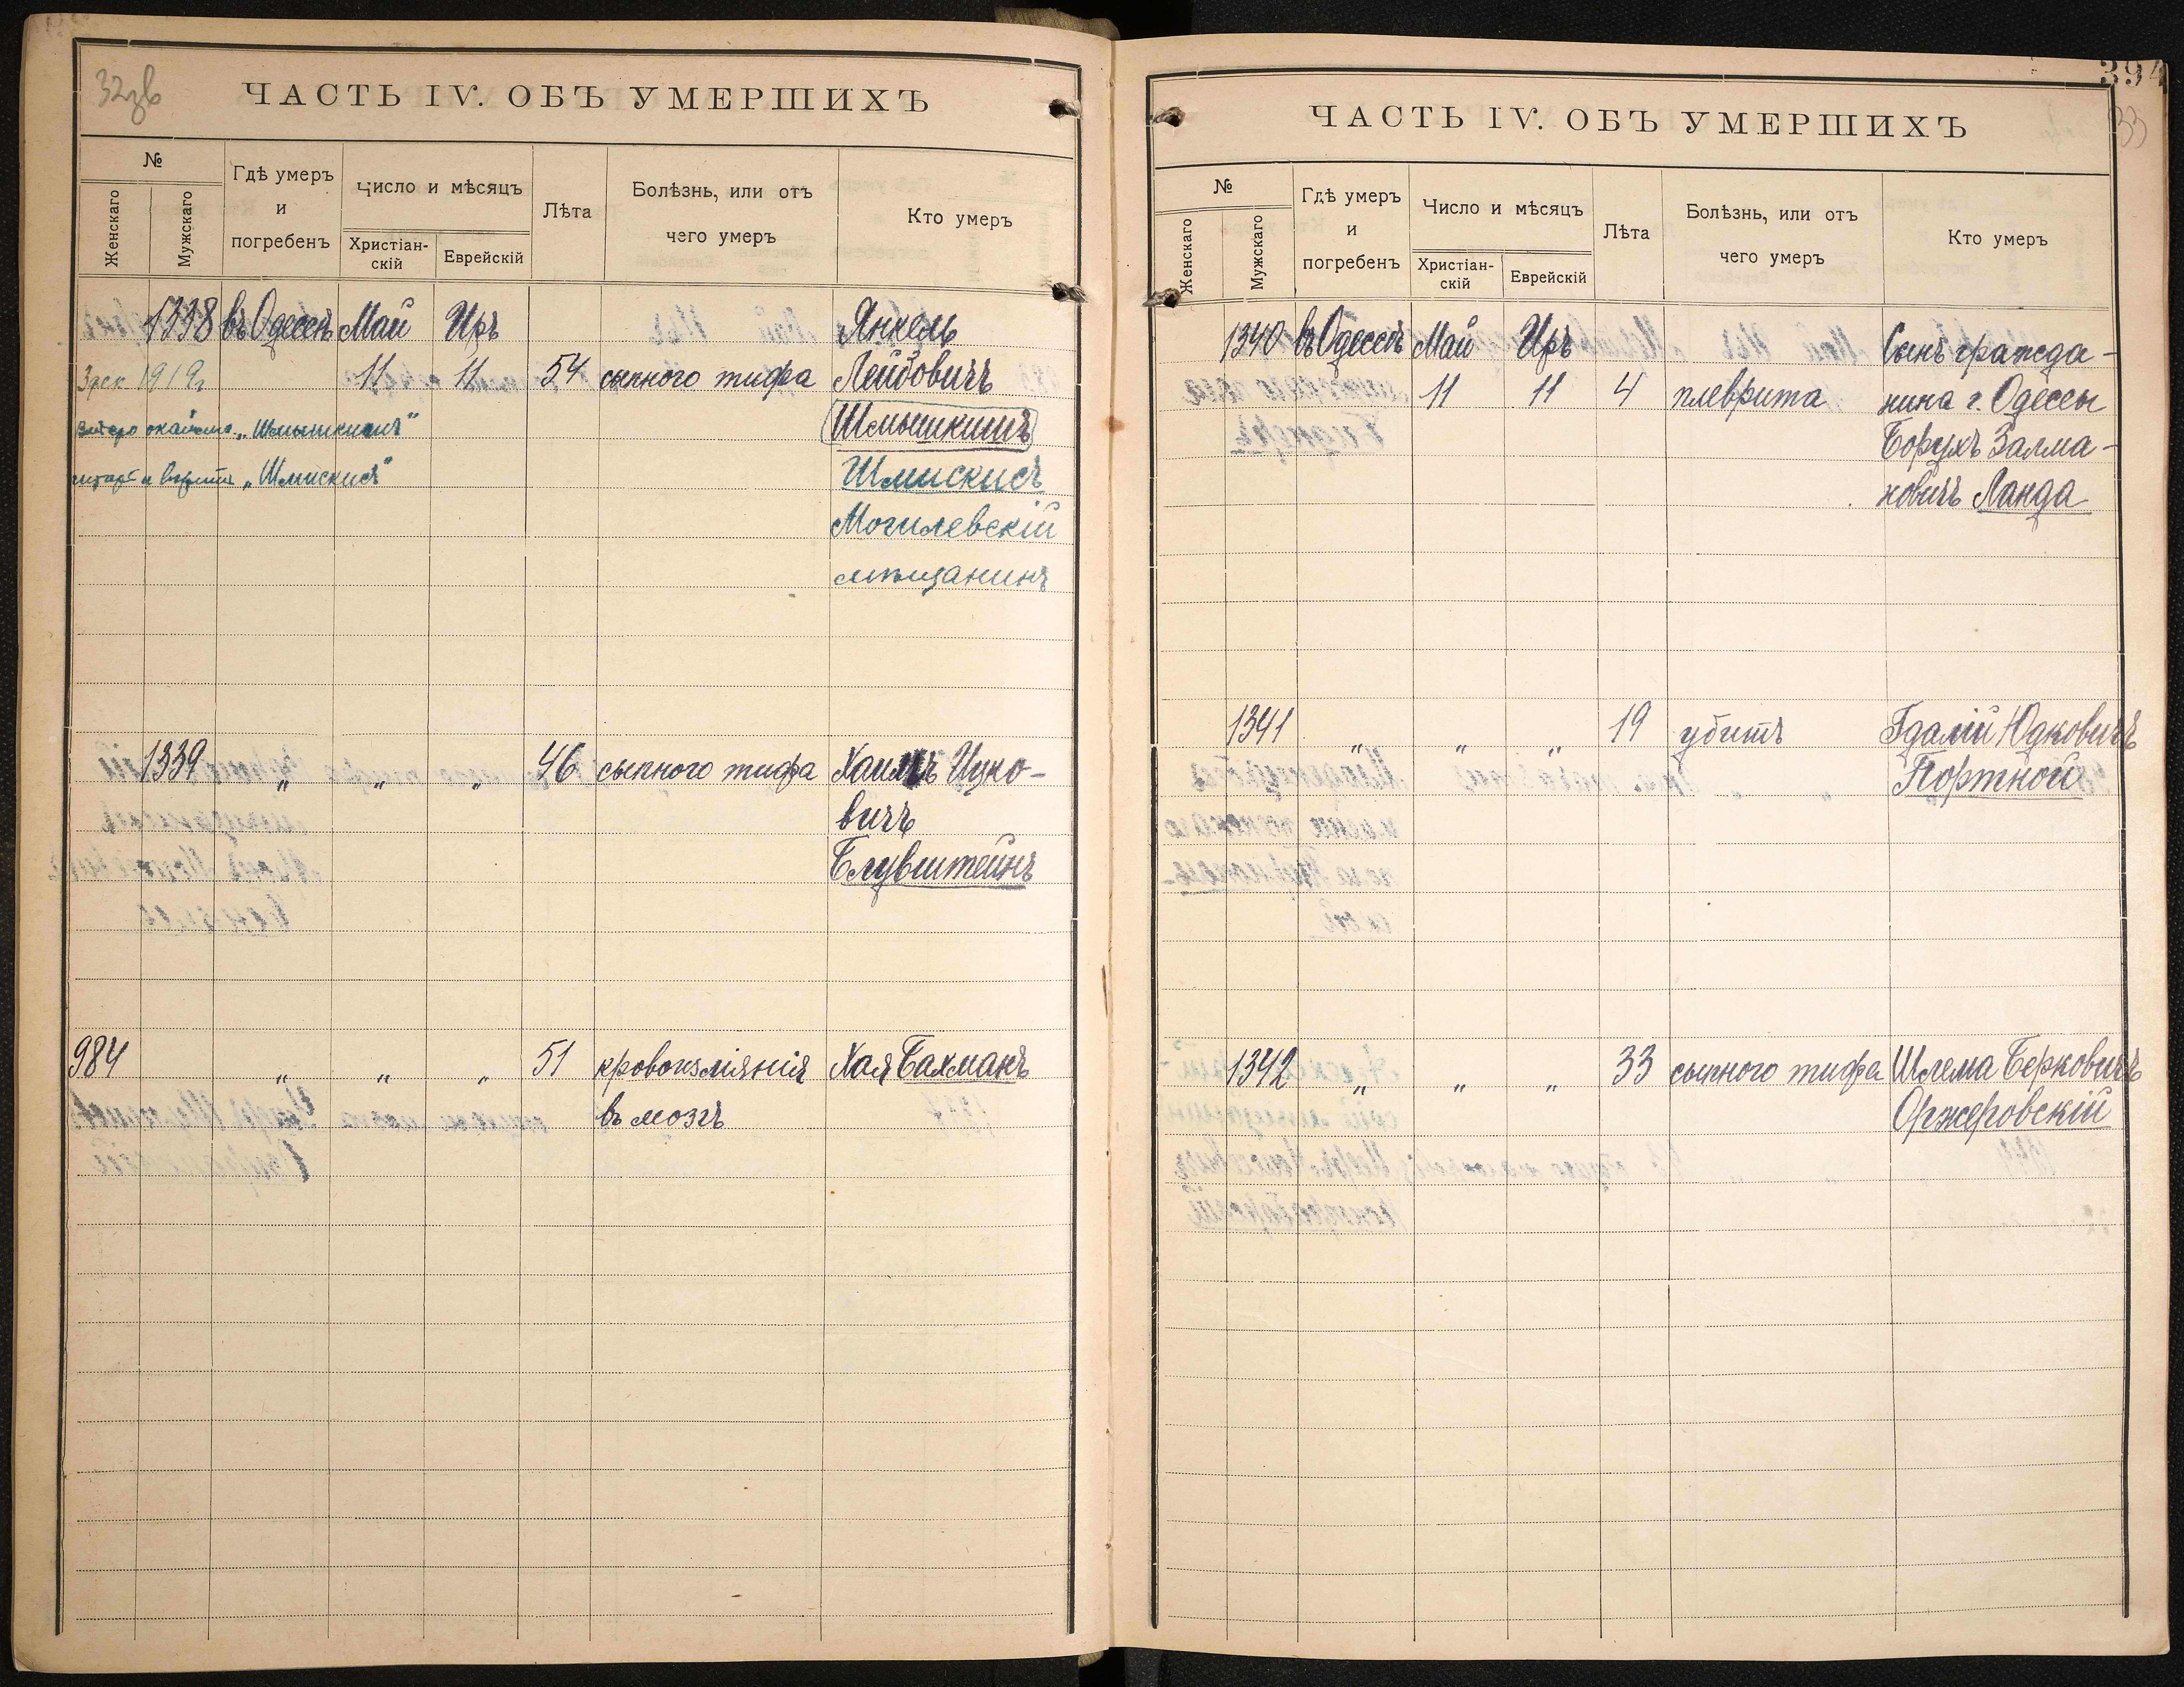 32зв
ЧАСТЬ IV. ОБЪ УМЕРШИХЪ
№
Женскаго
Мужскаго
Гдѣ умеръ
и
погребенъ
Число и мѣсяцъ
Христіан-
скій
Еврейскій
Лѣта
Болѣзнь, или отъ
чего умеръ
Кто умеръ
1338 въ Одессѣ Май Иръ Янкель
3 дек. 1919 г. 11 11 54 сыпного тифа Лейбовичъ
„Шмышкинъ" Шмышкинъ
„Шмискисъ" Шмискисъ
Могилевскій
мѣщанинъ
1339 „ „ „ 46 сыпного тифа Хаимъ Ицко-
вичъ
Блувштейнъ
984 „ „ „ 51 кровоизліянія Хая Бахманъ
въ мозгъ
394
33
ЧАСТЬ IV. ОБЪ УМЕРШИХЪ
№
Женскаго
Мужскаго
Гдѣ умеръ
и
погребенъ
Число и мѣсяцъ
Христіан-
скій
Еврейскій
Лѣта
Болѣзнь, или отъ
чего умеръ
Кто умеръ
1340 въ Одессѣ Май Иръ Сынъ гражда-
11 11 4 плеврита нина г. Одессы
Борухъ Залма-
новичъ Ланда
1341 „ „ „ 19 убитъ Гдалій Юдковичъ
Портной
1342 „ „ „ 33 сыпного тифа Шлема Берковичъ
Оржеровскій